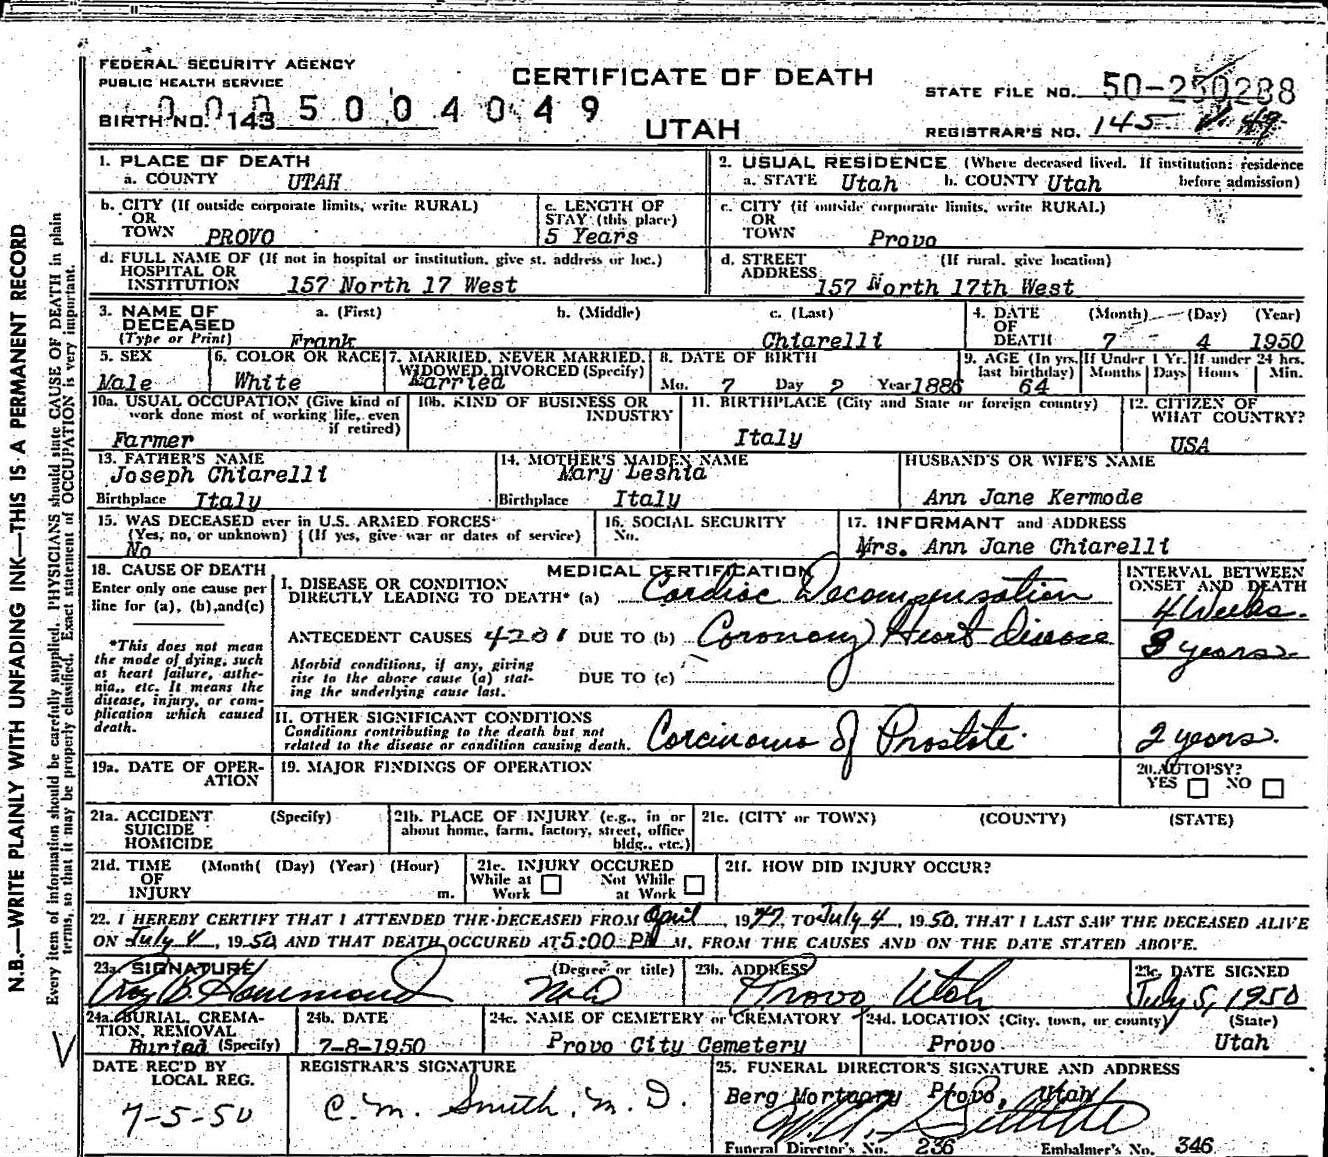 FEDERAL SECURITY AGENCY
PUBLIC HEALTH SERVICE
CERTIFICATE OF DEATH
STATE FILE NO. 50-250288
0005004049
BIRTH NO. 143
UTAH
REGISTRAR'S NO. 145
1. PLACE OF DEATH
a. COUNTY UTAH
2. USUAL RESIDENCE (Where deceased lived. If institution: residence before admission)
a. STATE Utah b. COUNTY Utah
b. CITY (If outside corporate limits, write RURAL)
OR
TOWN PROVO
c. LENGTH OF
STAY (this place)
5 Years
c. CITY (if outside corporate limits, write RURAL)
OR
TOWN Provo
d. FULL NAME OF (If not in hospital or institution, give st. address or loc.)
HOSPITAL OR
INSTITUTION 157 North 17 West
d. STREET (If rural, give location)
ADDRESS 157 North 17th West
3. NAME OF DECEASED
(Type or Print)
a. (First) b. (Middle) c. (Last)
Frank Chiarelli
4. DATE OF DEATH
(Month) (Day) (Year)
7 4 1950
5. SEX
Male
6. COLOR OR RACE
White
7. MARRIED, NEVER MARRIED,
WIDOWED, DIVORCED (Specify)
Married
8. DATE OF BIRTH
Mo. 7 Day 2 Year 1886
9. AGE (In yrs. last birthday)
64
If Under 1 Yr.
Months Days
If under 24 hrs.
Hours Min.
10a. USUAL OCCUPATION (Give kind of
work done most of working life, even
if retired)
Farmer
10b. KIND OF BUSINESS OR
INDUSTRY
11. BIRTHPLACE (City and State or foreign country)
Italy
12. CITIZEN OF
WHAT COUNTRY?
USA
13. FATHER'S NAME
Joseph Chiarelli
Birthplace Italy
14. MOTHER'S MAIDEN NAME
Mary Leshia
Birthplace Italy
HUSBAND'S OR WIFE'S NAME
Ann Jane Kermode
15. WAS DECEASED ever in U.S. ARMED FORCES?
(Yes, no, or unknown) (If yes, give war or dates of service)
No
16. SOCIAL SECURITY
No.
17. INFORMANT and ADDRESS
Mrs. Ann Jane Chiarelli
18. CAUSE OF DEATH
Enter only one cause per
line for (a), (b), and (c)
*This does not mean
the mode of dying, such
as heart failure, asthe-
nia, etc. It means the
disease, injury, or com-
plication which caused
death.
MEDICAL CERTIFICATION
INTERVAL BETWEEN
ONSET AND DEATH
I. DISEASE OR CONDITION
DIRECTLY LEADING TO DEATH* (a) Cardiac Decompensation
4 Weeks.
ANTECEDENT CAUSES 4201 DUE TO (b) Coronary Heart Disease
3 years
Morbid conditions, if any, giving
rise to the above cause (a) stat-
ing the underlying cause last.
DUE TO (c)
II. OTHER SIGNIFICANT CONDITIONS
Conditions contributing to the death but not
related to the disease or condition causing death.
Carcinoma of Prostate.
2 years.
19a. DATE OF OPER-
ATION
19. MAJOR FINDINGS OF OPERATION
20. AUTOPSY?
YES NO
21a. ACCIDENT (Specify)
SUICIDE
HOMICIDE
21b. PLACE OF INJURY (e.g., in or
about home, farm, factory, street, office
bldg., etc.)
21c. (CITY or TOWN) (COUNTY) (STATE)
21d. TIME (Month( (Day) (Year) (Hour)
OF
INJURY m.
21e. INJURY OCCURED
While at Work Not While at Work
21f. HOW DID INJURY OCCUR?
22. I HEREBY CERTIFY THAT I ATTENDED THE DECEASED FROM April, 1947, TO July 4, 1950, THAT I LAST SAW THE DECEASED ALIVE
ON July 4, 1950 AND THAT DEATH OCCURED AT 5:00 PM M, FROM THE CAUSES AND ON THE DATE STATED ABOVE.
23a. SIGNATURE (Degree or title)
Roy B. Hammond MD
23b. ADDRESS
Provo Utah
23c. DATE SIGNED
July 5, 1950
24a. BURIAL, CREMA-
TION, REMOVAL
Buried (Specify)
24b. DATE
7-8-1950
24c. NAME OF CEMETERY or CREMATORY
Provo City Cemetery
24d. LOCATION (City, town, or county) (State)
Provo Utah
DATE REC'D BY
LOCAL REG.
7-5-50
REGISTRAR'S SIGNATURE
C. M. Smith, M. D.
25. FUNERAL DIRECTOR'S SIGNATURE AND ADDRESS
Berg Mortuary Provo, Utah
Funeral Director's No. 236 Embalmer's No. 346
N.B.—WRITE PLAINLY WITH UNFADING INK—THIS IS A PERMANENT RECORD
Every item of information should be carefully supplied. PHYSICIANS should state CAUSE OF DEATH in plain
terms, so that it may be properly classified. Exact statement of OCCUPATION is very important.